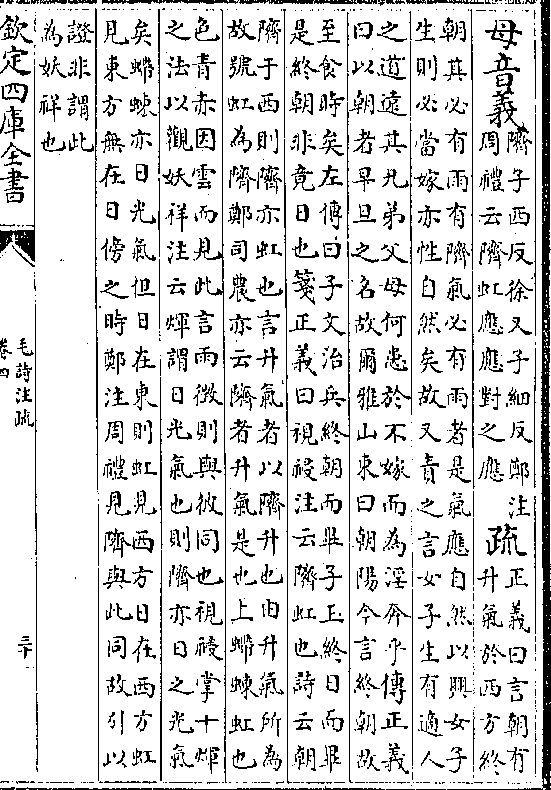 母音義隮子西反徐又子細反鄭注
周禮云隮虹應應對之應
疏正義曰言朝有
升氣於西方終
朝其必有雨有隮氣必有雨者是氣應自然以興女子
生則必當嫁亦性自然矣故又責之言女子生有適人
之道遠其兄弟父母何患於不嫁而為淫奔乎傳正義
曰以朝者早旦之名故爾雅山東曰朝陽今言終朝故
至食時矣左傳曰子文治兵終朝而畢子玉終日而畢
是終朝非竟日也箋正義曰視祲注云隮虹也詩云朝
隮于西則隮亦虹也言升氣者以隮升也由升氣所為
故號虹為隮鄭司農亦云隮者升氣是也上螮蝀虹也
色青赤因雲而見此言雨徵則與彼同也視祲掌十煇
之法以觀妖祥注云煇謂日光氣也則隮亦日之光氣
矣螮蝀亦日光氣但日在東則虹見西方日在西方虹
見東方無在日傍之時鄭注周禮見隮與此同故引以
證非謂此
為妖祥也
欽定四庫全書
毛詩注疏
卷四
三十